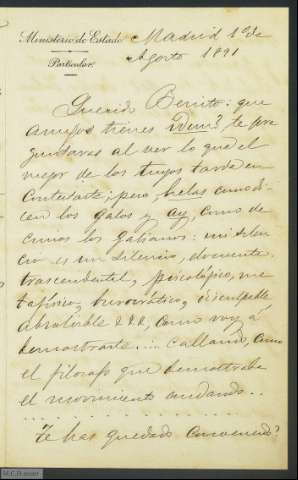 Ministerio de Estado
Particular.
Madrid 1º de
Agosto 1891
Querido Benito: que
amigos tienes te pre
guntaras al ver lo que el
mejor de los tuyos tarda en
contestarte; pero, helas como di
cen los galos y ay, como de
cimos los : mi silen
cio es un silencio, elocuente,
trascendental, psicológico, me
tafísico, burocrático, é
absoluble &&&, como voy á
demostrarte ... callando, como
el filosofo que demostraba
el movimiento andando..
. . . . . . . . . . . . . . . .
Te has quedado convencido?